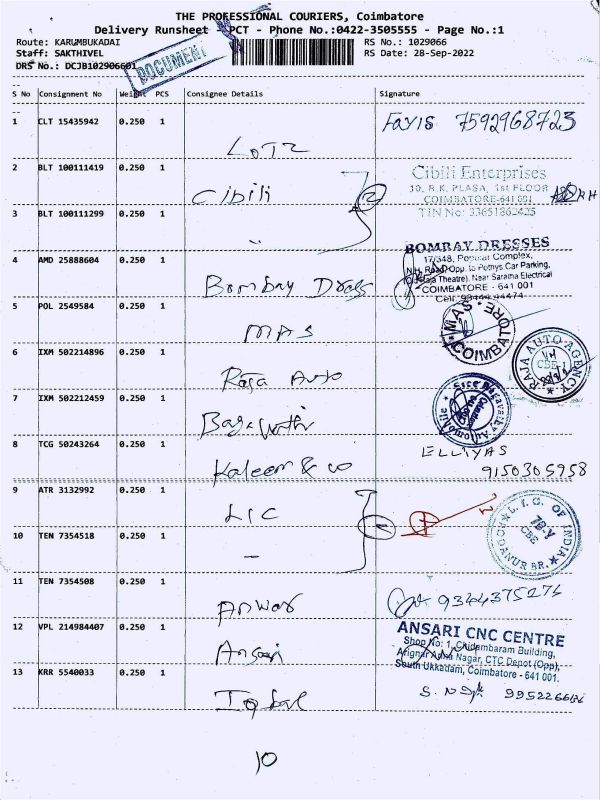 THE PROFESSIONAL COURIERS, Coimbatore
Delivery Runsheet - PCT - Phone No.:0422-3505555 - Page No.:1
Route: KARUMBUKADAI RS No.: 1029066
Staff: SAKTHIVEL RS Date: 28-Sep-2022
DRS No.: DCJB102906601
DOCUMENT
S No Consignment No Weight PCS Consignee Details Signature
1 CLT 15435942 0.250 1 Fayis 7592968723
2 BLT 100111419 0.250 1 Cibili
Cibili Enterprises
10, R.K. PLASA, 1st FLOOR
COIMBATORE-641 001
TIN No: 33651862425
3 BLT 100111299 0.250 1 "
4 AMD 25888604 0.250 1 Bombay Dress
BOMBAY DRESSES
17/348, Popular Complex,
N.H. Road, Opp. to Pothys Car Parking,
Theatre), Near Sarama Electrical
COIMBATORE - 641 001
5 POL 2549584 0.250 1 MAS
MAS COIMBATORE
6 IXM 502214896 0.250 1 Raja Auto
RAJA AUTO AGENCY CBE
7 IXM 502212459 0.250 1
Sree Bagavathy Automobile
8 TCG 50243264 0.250 1 Kaleem & co
ELLIYAS
9150305958
9 ATR 3132992 0.250 1 LIC
L.I.C. OF INDIA
CBE
10 TEN 7354518 0.250 1 "
11 TEN 7354508 0.250 1 Anwar 9344375276
12 VPL 214984407 0.250 1 Ansari
ANSARI CNC CENTRE
Shop No: 1, Chidambaram Building,
Arignar Anna Nagar, CTC Depot (Opp),
South Ukkadam, Coimbatore - 641 001.
13 KRR 5540033 0.250 1 Iqbal
10